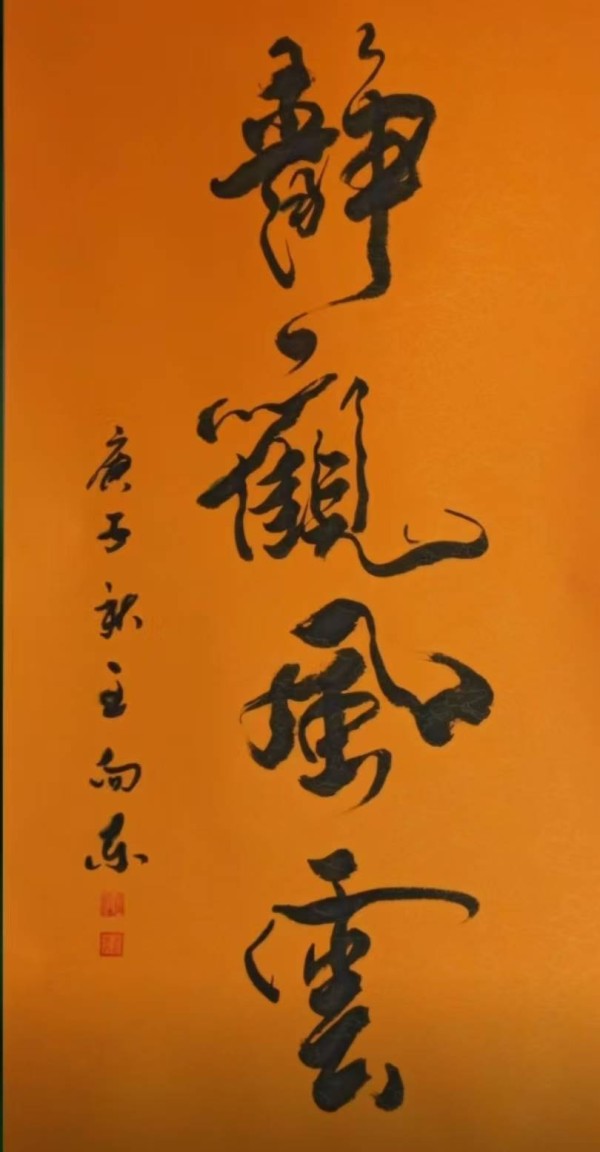 靜觀風雲
庚子秋王向东